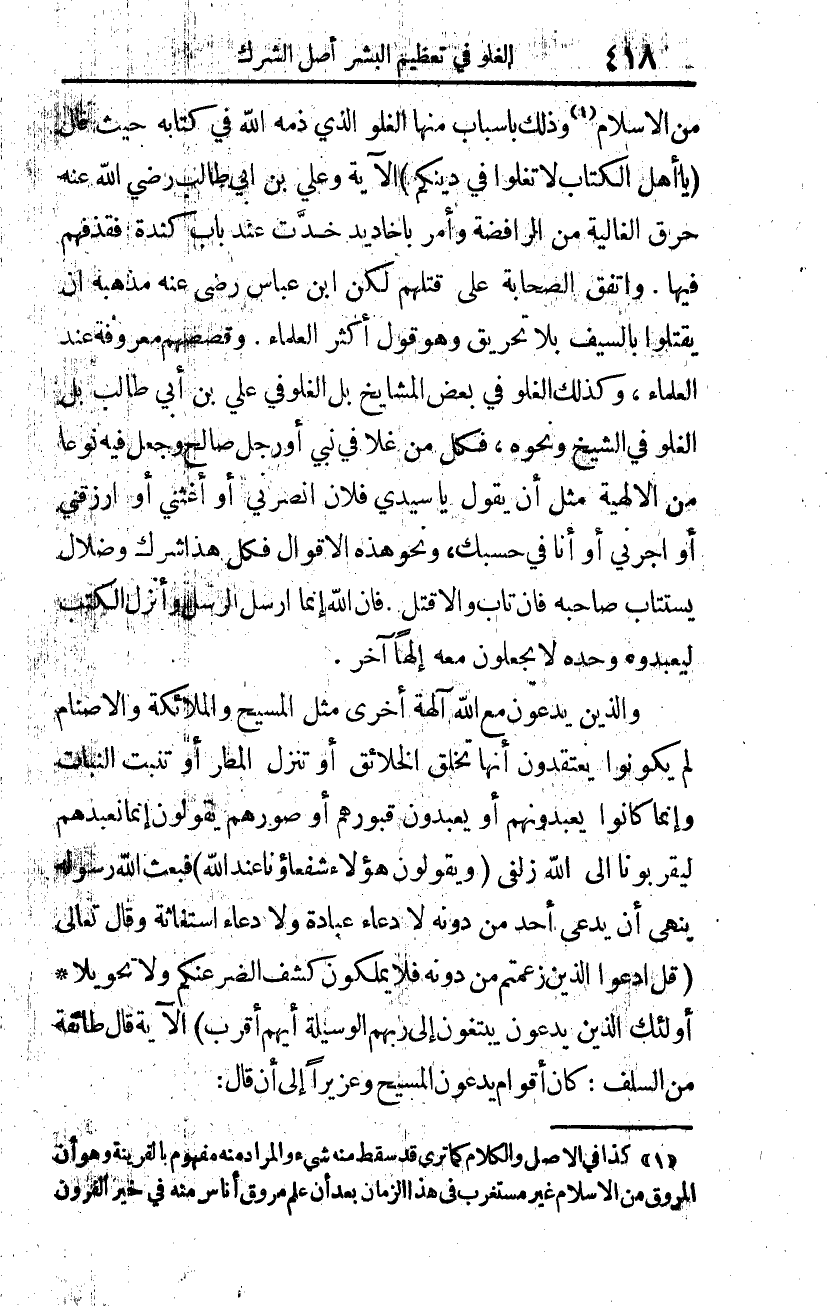 ٤١٨ الغلو في تعظيم البشر أصل الشرك
من الاسلام (١) وذلك باسباب منها الغلو الذي ذمه الله في كتابه حيث قال
(ياأهل الكتاب لا تغلوا في دينكم) الآية وعلي بن ابي طالب رضي الله عنه
حرق الغالية من الرافضة وأمر باخاديد خدَّت عند باب كندة فقذفهم
فيها . واتفق الصحابة على قتلهم لكن ابن عباس رضى عنه مذهبه ان
يقتلوا بالسيف بلا تحريق وهو قول أكثر العلماء . وقصصهم معروفة عند
العلماء ، وكذلك الغلو في بعض المشايخ بل الغلو في علي بن أبي طالب بل
الغلو في الشيخ ونحوه ، فكل من غلا في نبي أو رجل صالح وجعل فيه نوعا
من الالهية مثل أن يقول ياسيدي فلان انصرني أو أغثني أو ارزقني
أو اجرني أو أنا في حسبك، ونحو هذه الاقوال فكل هذا شرك وضلال
يستتاب صاحبه فان تاب والا قتل . فان الله إنما ارسل الرسل وأنزل الكتب
ليعبدوه وحده لا يجعلون معه إلهاً آخر .
والذين يدعون مع الله آلهة أخرى مثل المسيح والملائكة والاصنام
لم يكونوا يعتقدون أنها تخلق الخلائق أو تنزل المطر أو تنبت النبات
وإنما كانوا يعبدونهم أو يعبدون قبورهم أو صورهم يقولون إنما نعبدهم
ليقربونا الى الله زلفى (ويقولون هؤلاء شفعاؤنا عند الله) فبعث الله رسوله
ينهى أن يدعى أحد من دونه لا دعاء عبادة ولا دعاء استغاثة وقال تعالى
(قل ادعوا الذين زعمتم من دونه فلا يملكون كشف الضر عنكم ولا تحويلا *
أولئك الذين يدعون يبتغون إلى ربهم الوسيلة أيهم أقرب) الآية قال طائفة
من السلف : كان أقوام يدعون المسيح وعزيراً إلى أن قال :
«١» كذا في الاصل والكلام كما ترى قد سقط منه شيء والمراد منه مفهوم بالقرينة وهو أن
المروق من الاسلام غير مستغرب فى هذا الزمان بعد أن علم مروق أناس منه في خير القرون